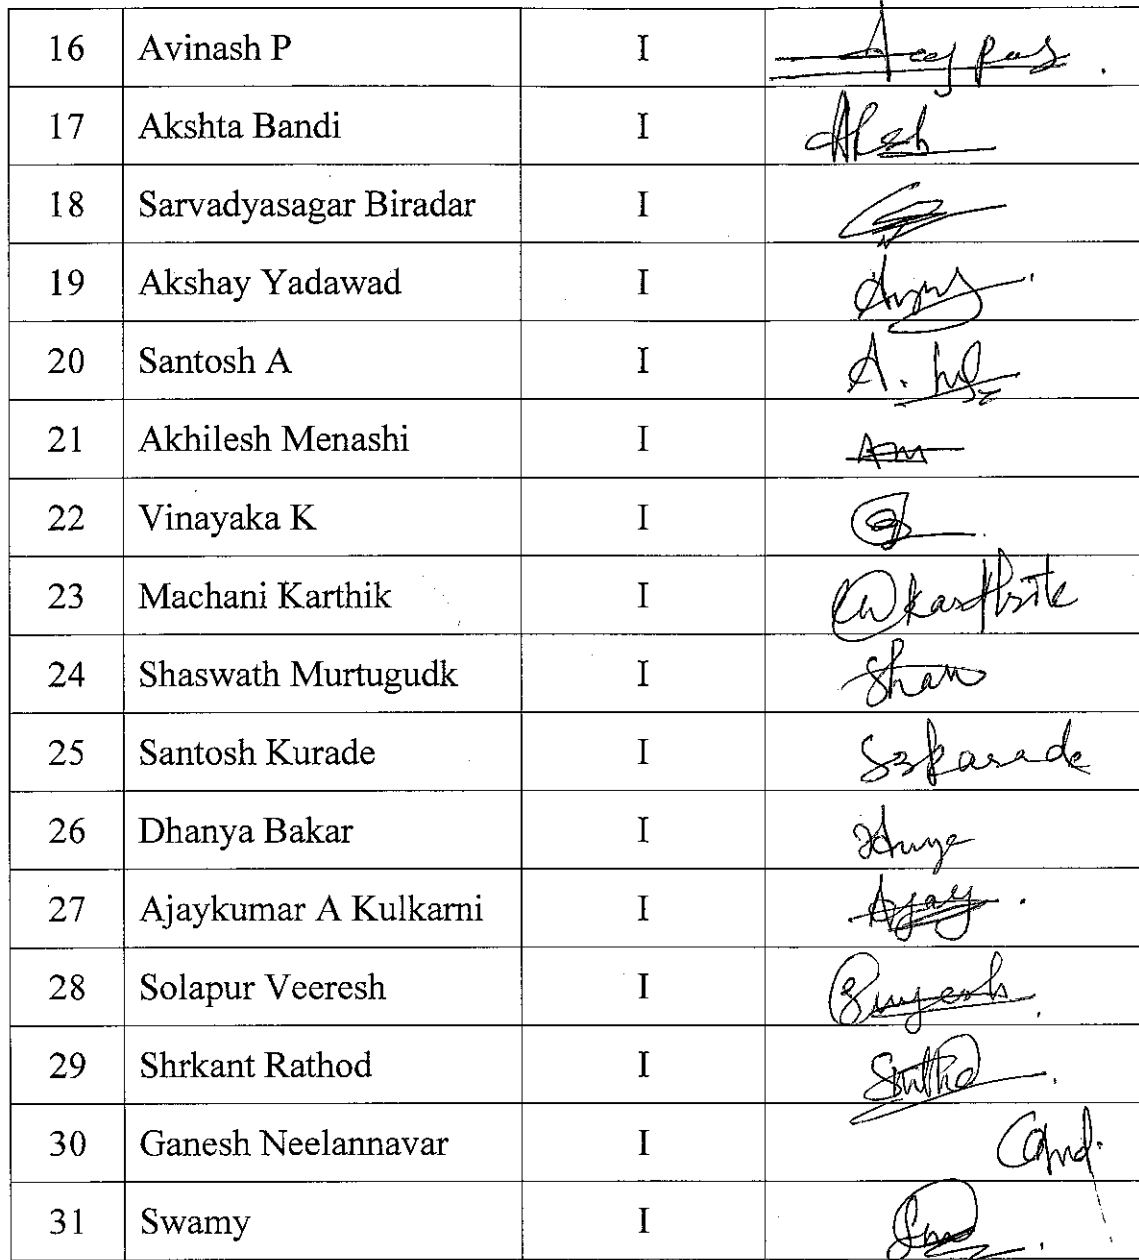 16 Avinash P I
17 Akshta Bandi I
18 Sarvadyasagar Biradar I
19 Akshay Yadawad I
20 Santosh A I A.
21 Akhilesh Menashi I AM
22 Vinayaka K I
23 Machani Karthik I
24 Shaswath Murtugudk I
25 Santosh Kurade I
26 Dhanya Bakar I
27 Ajaykumar A Kulkarni I Ajay.
28 Solapur Veeresh I
29 Shrkant Rathod I
30 Ganesh Neelannavar I
31 Swamy I